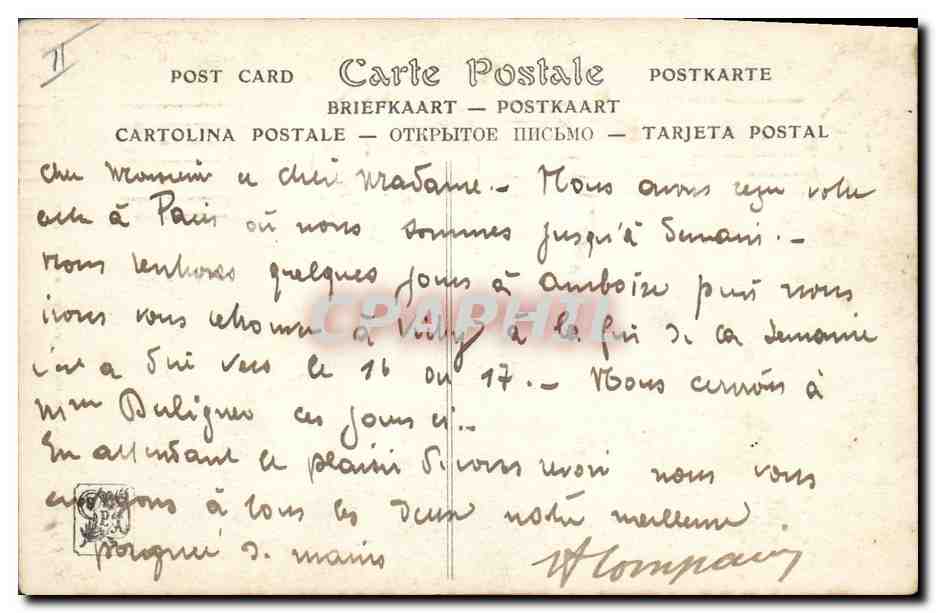 11
POST CARD Carte Postale POSTKARTE
BRIEFKAART — POSTKAART
CARTOLINA POSTALE — ОТКРЫТОЕ ПИСЬМО — TARJETA POSTAL
Cher Monsieur et chère Madame. - Nous avons reçu votre
carte à Paris où nous sommes jusqu'à demain. -
Nous rentrons quelques jours à Amboise puis nous
irons vous retrouver à Vitry à la fin de la semaine
c'est à dire vers le 16 ou 17. - Nous écrivons à
Mme ces jours ci. -
En attendant le plaisir de vous revoir nous vous
envoyons à tous les deux notre meilleure
poignée de mains
CPARHTI